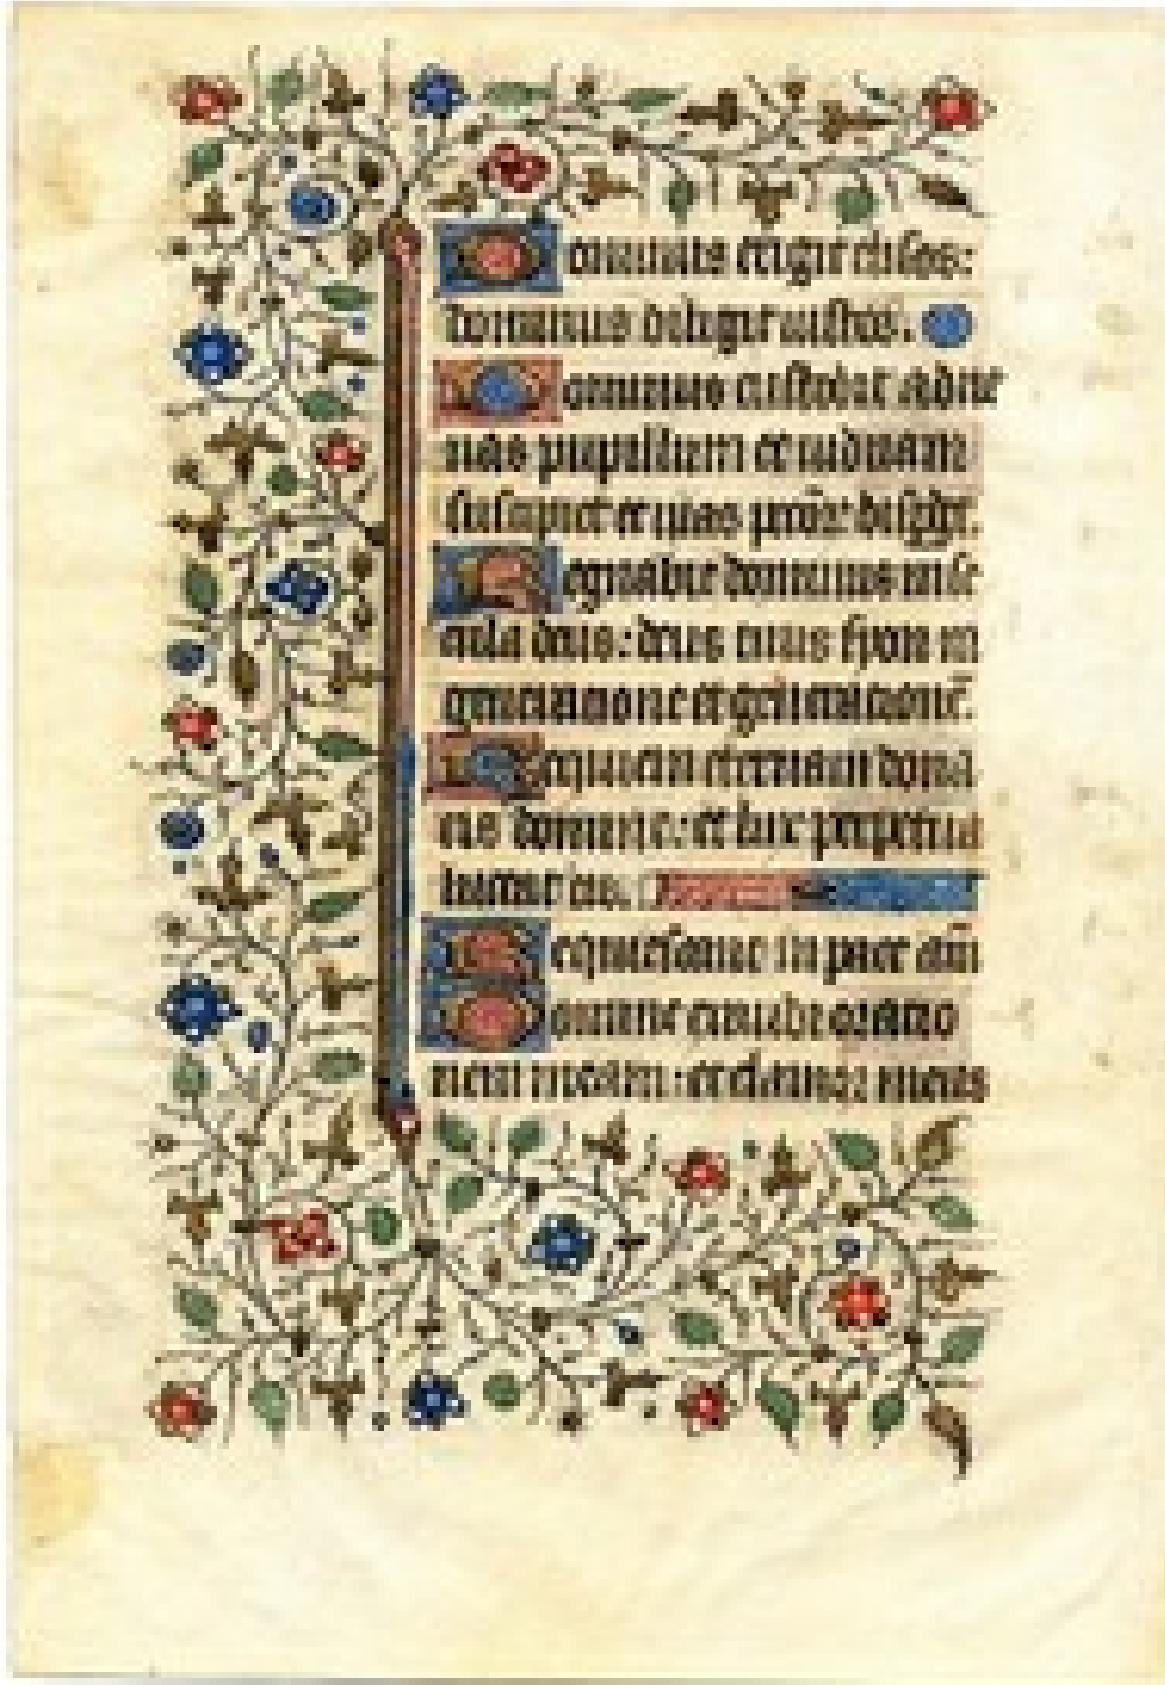 Dominus erigit elisos:
dominus diligit iustos.
Dominus custodit adue
nas pupillum et uiduam
suscipiet et uias disp̱det.
Regnabit dominus in se
cula deus: deus tuus syon in
generatione et generationē.
Requiem eternam dona
eis domine: et lux perpetua
luceat eis.
Requiescant in pace am̄
Domine exaudi oratio
nem meam: et clamor meus